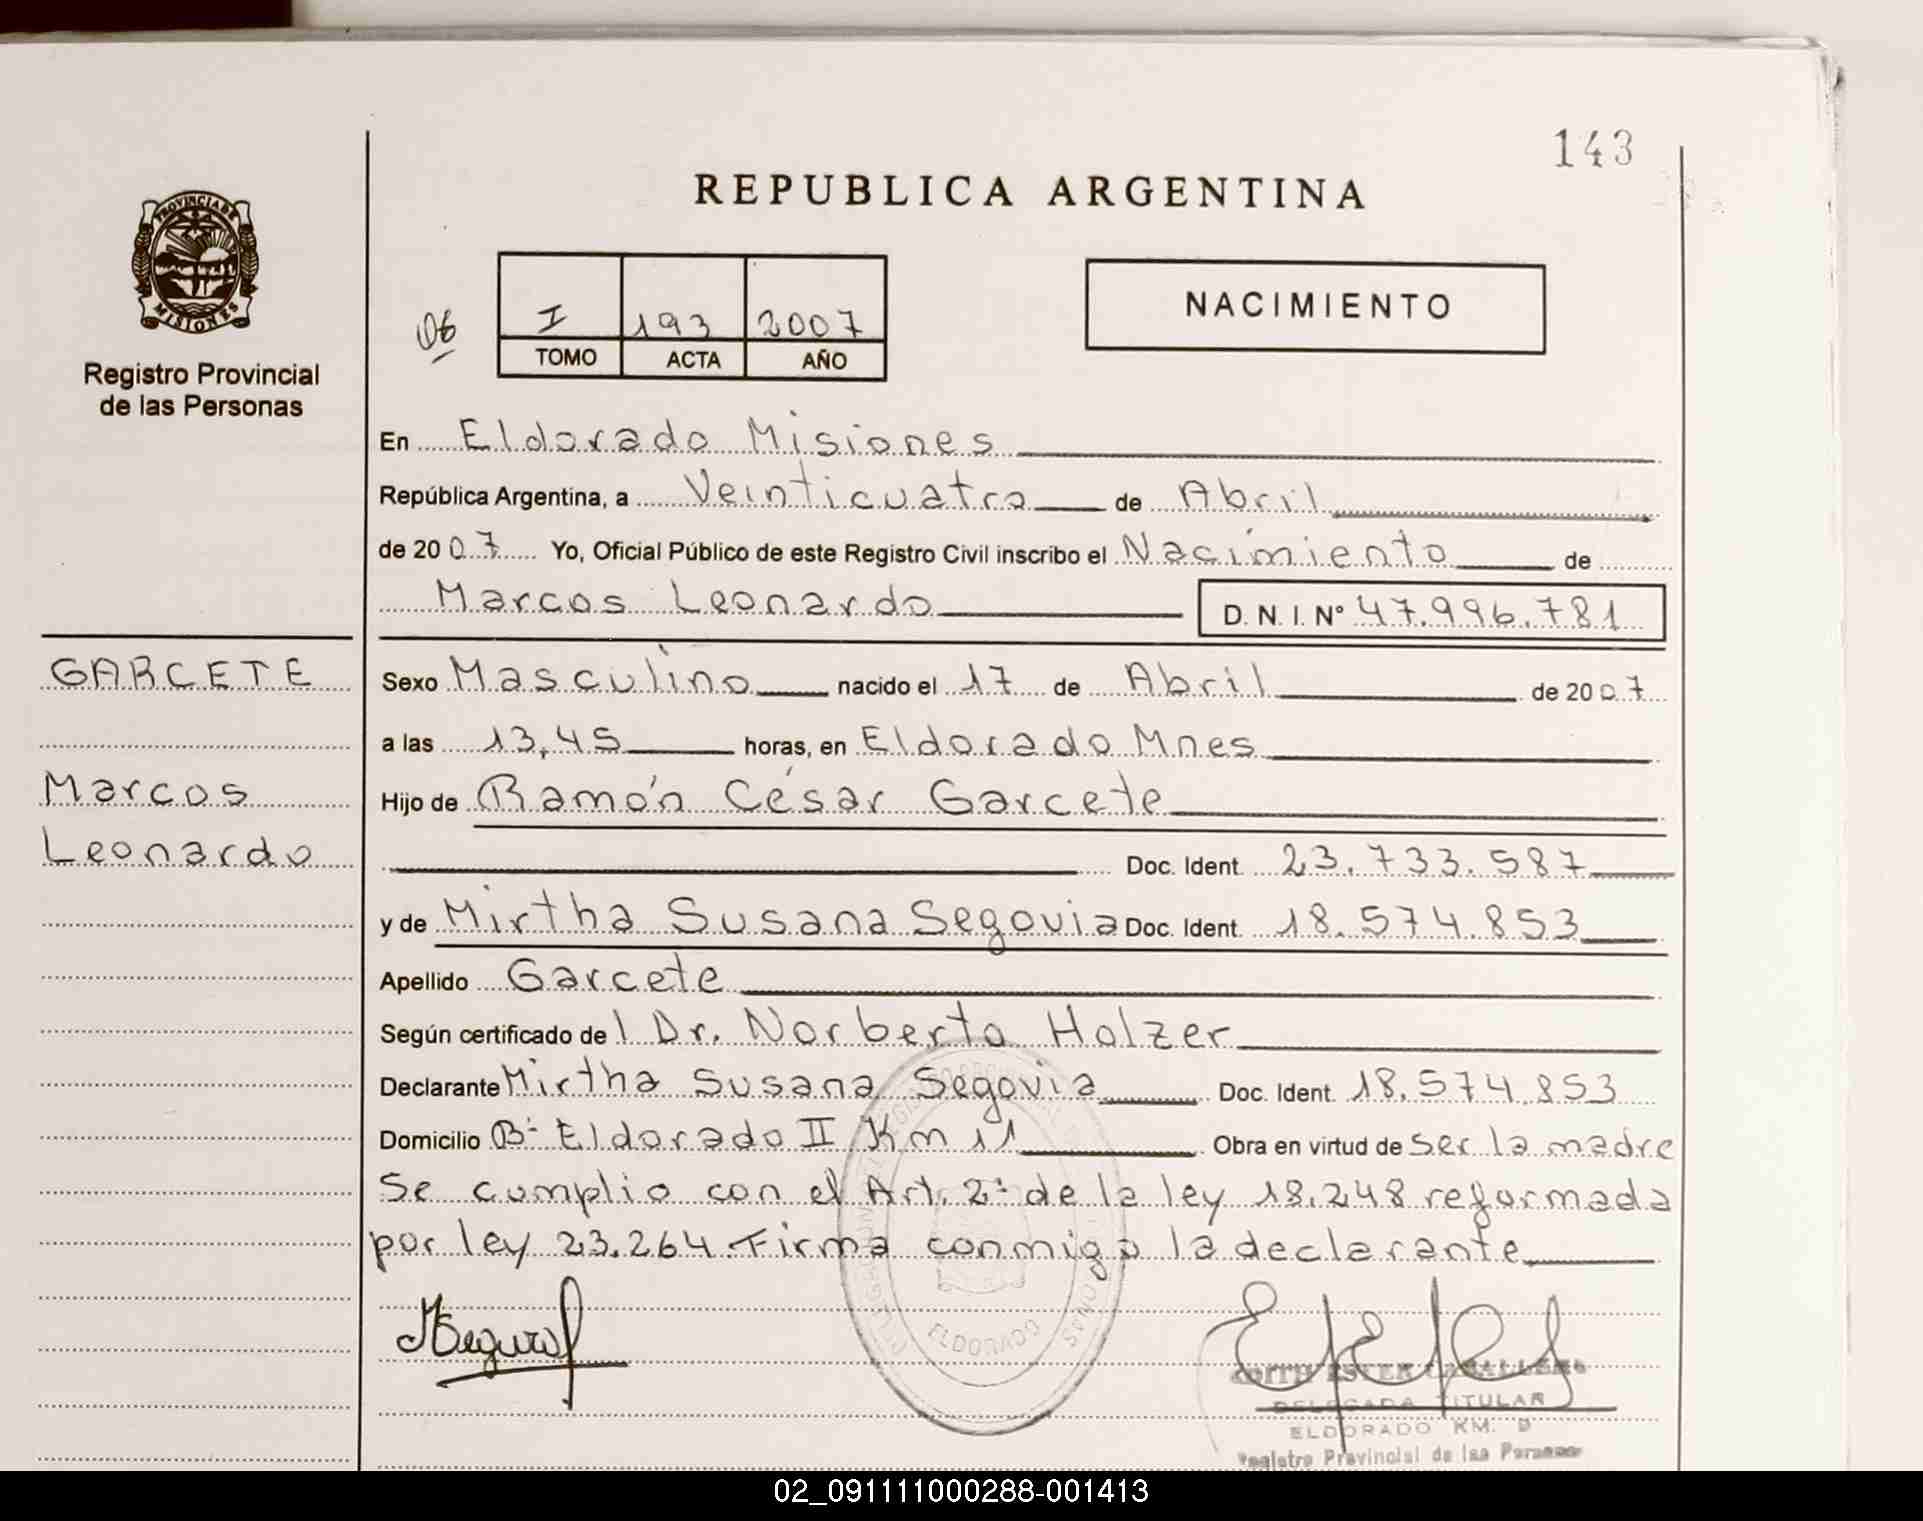 143
REPUBLICA ARGENTINA
PROVINCIA DE
MISIONES
Registro Provincial
de las Personas
06
I 193 2007
TOMO ACTA AÑO
NACIMIENTO
En Eldorado Misiones
República Argentina, a Veinticuatro de Abril
de 2007 Yo, Oficial Público de este Registro Civil inscribo el Nacimiento de
Marcos Leonardo D. N. I. Nº 47.996.781
GARCETE
Marcos
Leonardo
Sexo Masculino nacido el 17 de Abril de 2007
a las 13,45 horas, en Eldorado Mnes
Hijo de Ramón César Garcete
Doc. Ident. 23.733.587
y de Mirtha Susana Segovia Doc. Ident. 18.574.853
Apellido Garcete
Según certificado de l Dr. Norberto Holzer
Declarante Mirtha Susana Segovia Doc. Ident. 18.574.853
Domicilio Bº Eldorado II Km 11 Obra en virtud de Ser la madre
Se cumplio con el Art. 2º de la ley 18.248 reformada
por ley 23.264 Firma conmigo la declarante
ELDORADO
EDITH ESTER CABALLERO
DELEGADA TITULAR
ELDORADO KM. 9
Registro Provincial de las Personas
02_091111000288-001413